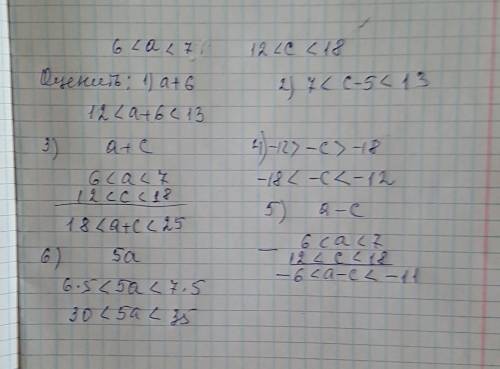 6 < a < 7     12 < c < 18
Оценить: 1) a+6     2) 7 < c-5 < 13
12 < a+6 < 13
3) a+c
6 < a < 7
12 < c < 18
18 < a+c < 25
4) -12 > -c > -18
-18 < -c < -12
5) a-c
- 6 < a < 7
12 < c < 18
-6 < a-c < -11
6) 5a
6·5 < 5a < 7·5
30 < 5a < 35